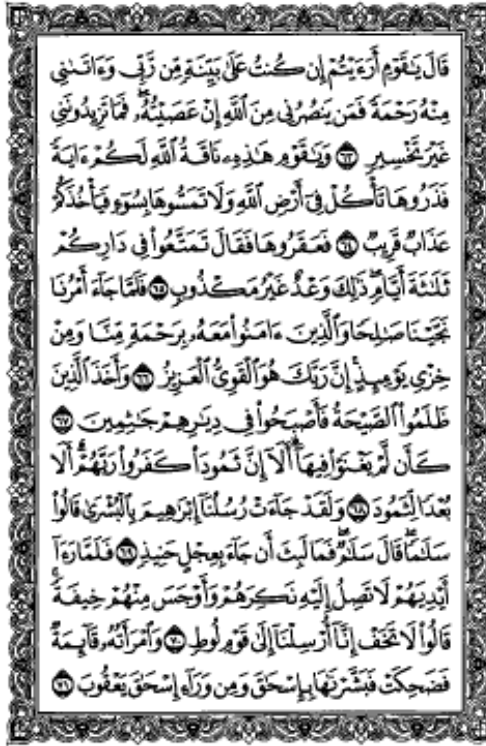 قَالَ يَٰقَوْمِ أَرَءَيْتُمْ إِن كُنتُ عَلَىٰ بَيِّنَةٍ مِّن رَّبِّي وَءَاتَىٰنِي
مِنْهُ رَحْمَةً فَمَن يَنصُرُنِي مِنَ ٱللَّهِ إِنْ عَصَيْتُهُۥ فَمَا تَزِيدُونَنِي
غَيْرَ تَخْسِيرٍ ٦٣ وَيَٰقَوْمِ هَٰذِهِۦ نَاقَةُ ٱللَّهِ لَكُمْ ءَايَةً
فَذَرُوهَا تَأْكُلْ فِيٓ أَرْضِ ٱللَّهِ وَلَا تَمَسُّوهَا بِسُوٓءٍ فَيَأْخُذَكُمْ
عَذَابٌ قَرِيبٌ ٦٤ فَعَقَرُوهَا فَقَالَ تَمَتَّعُوا۟ فِي دَارِكُمْ
ثَلَٰثَةَ أَيَّامٍ ۖ ذَٰلِكَ وَعْدٌ غَيْرُ مَكْذُوبٍ ٦٥ فَلَمَّا جَآءَ أَمْرُنَا
نَجَّيْنَا صَٰلِحًا وَٱلَّذِينَ ءَامَنُوا۟ مَعَهُۥ بِرَحْمَةٍ مِّنَّا وَمِنْ
خِزْيِ يَوْمِئِذٍ ۗ إِنَّ رَبَّكَ هُوَ ٱلْقَوِيُّ ٱلْعَزِيزُ ٦٦ وَأَخَذَ ٱلَّذِينَ
ظَلَمُوا۟ ٱلصَّيْحَةُ فَأَصْبَحُوا۟ فِي دِيَٰرِهِمْ جَٰثِمِينَ ٦٧
كَأَن لَّمْ يَغْنَوْا۟ فِيهَآ ۗ أَلَآ إِنَّ ثَمُودَا۟ كَفَرُوا۟ رَبَّهُمْ ۗ أَلَا
بُعْدًا لِّثَمُودَ ٦٨ وَلَقَدْ جَآءَتْ رُسُلُنَآ إِبْرَٰهِيمَ بِٱلْبُشْرَىٰ قَالُوا۟
سَلَٰمًا ۖ قَالَ سَلَٰمٌ ۖ فَمَا لَبِثَ أَن جَآءَ بِعِجْلٍ حَنِيذٍ ٦٩ فَلَمَّا رَءَآ
أَيْدِيَهُمْ لَا تَصِلُ إِلَيْهِ نَكِرَهُمْ وَأَوْجَسَ مِنْهُمْ خِيفَةً ۚ
قَالُوا۟ لَا تَخَفْ إِنَّآ أُرْسِلْنَآ إِلَىٰ قَوْمِ لُوطٍ ٧٠ وَٱمْرَأَتُهُۥ قَآئِمَةٌ
فَضَحِكَتْ فَبَشَّرْنَٰهَا بِإِسْحَٰقَ وَمِن وَرَآءِ إِسْحَٰقَ يَعْقُوبَ ٧١